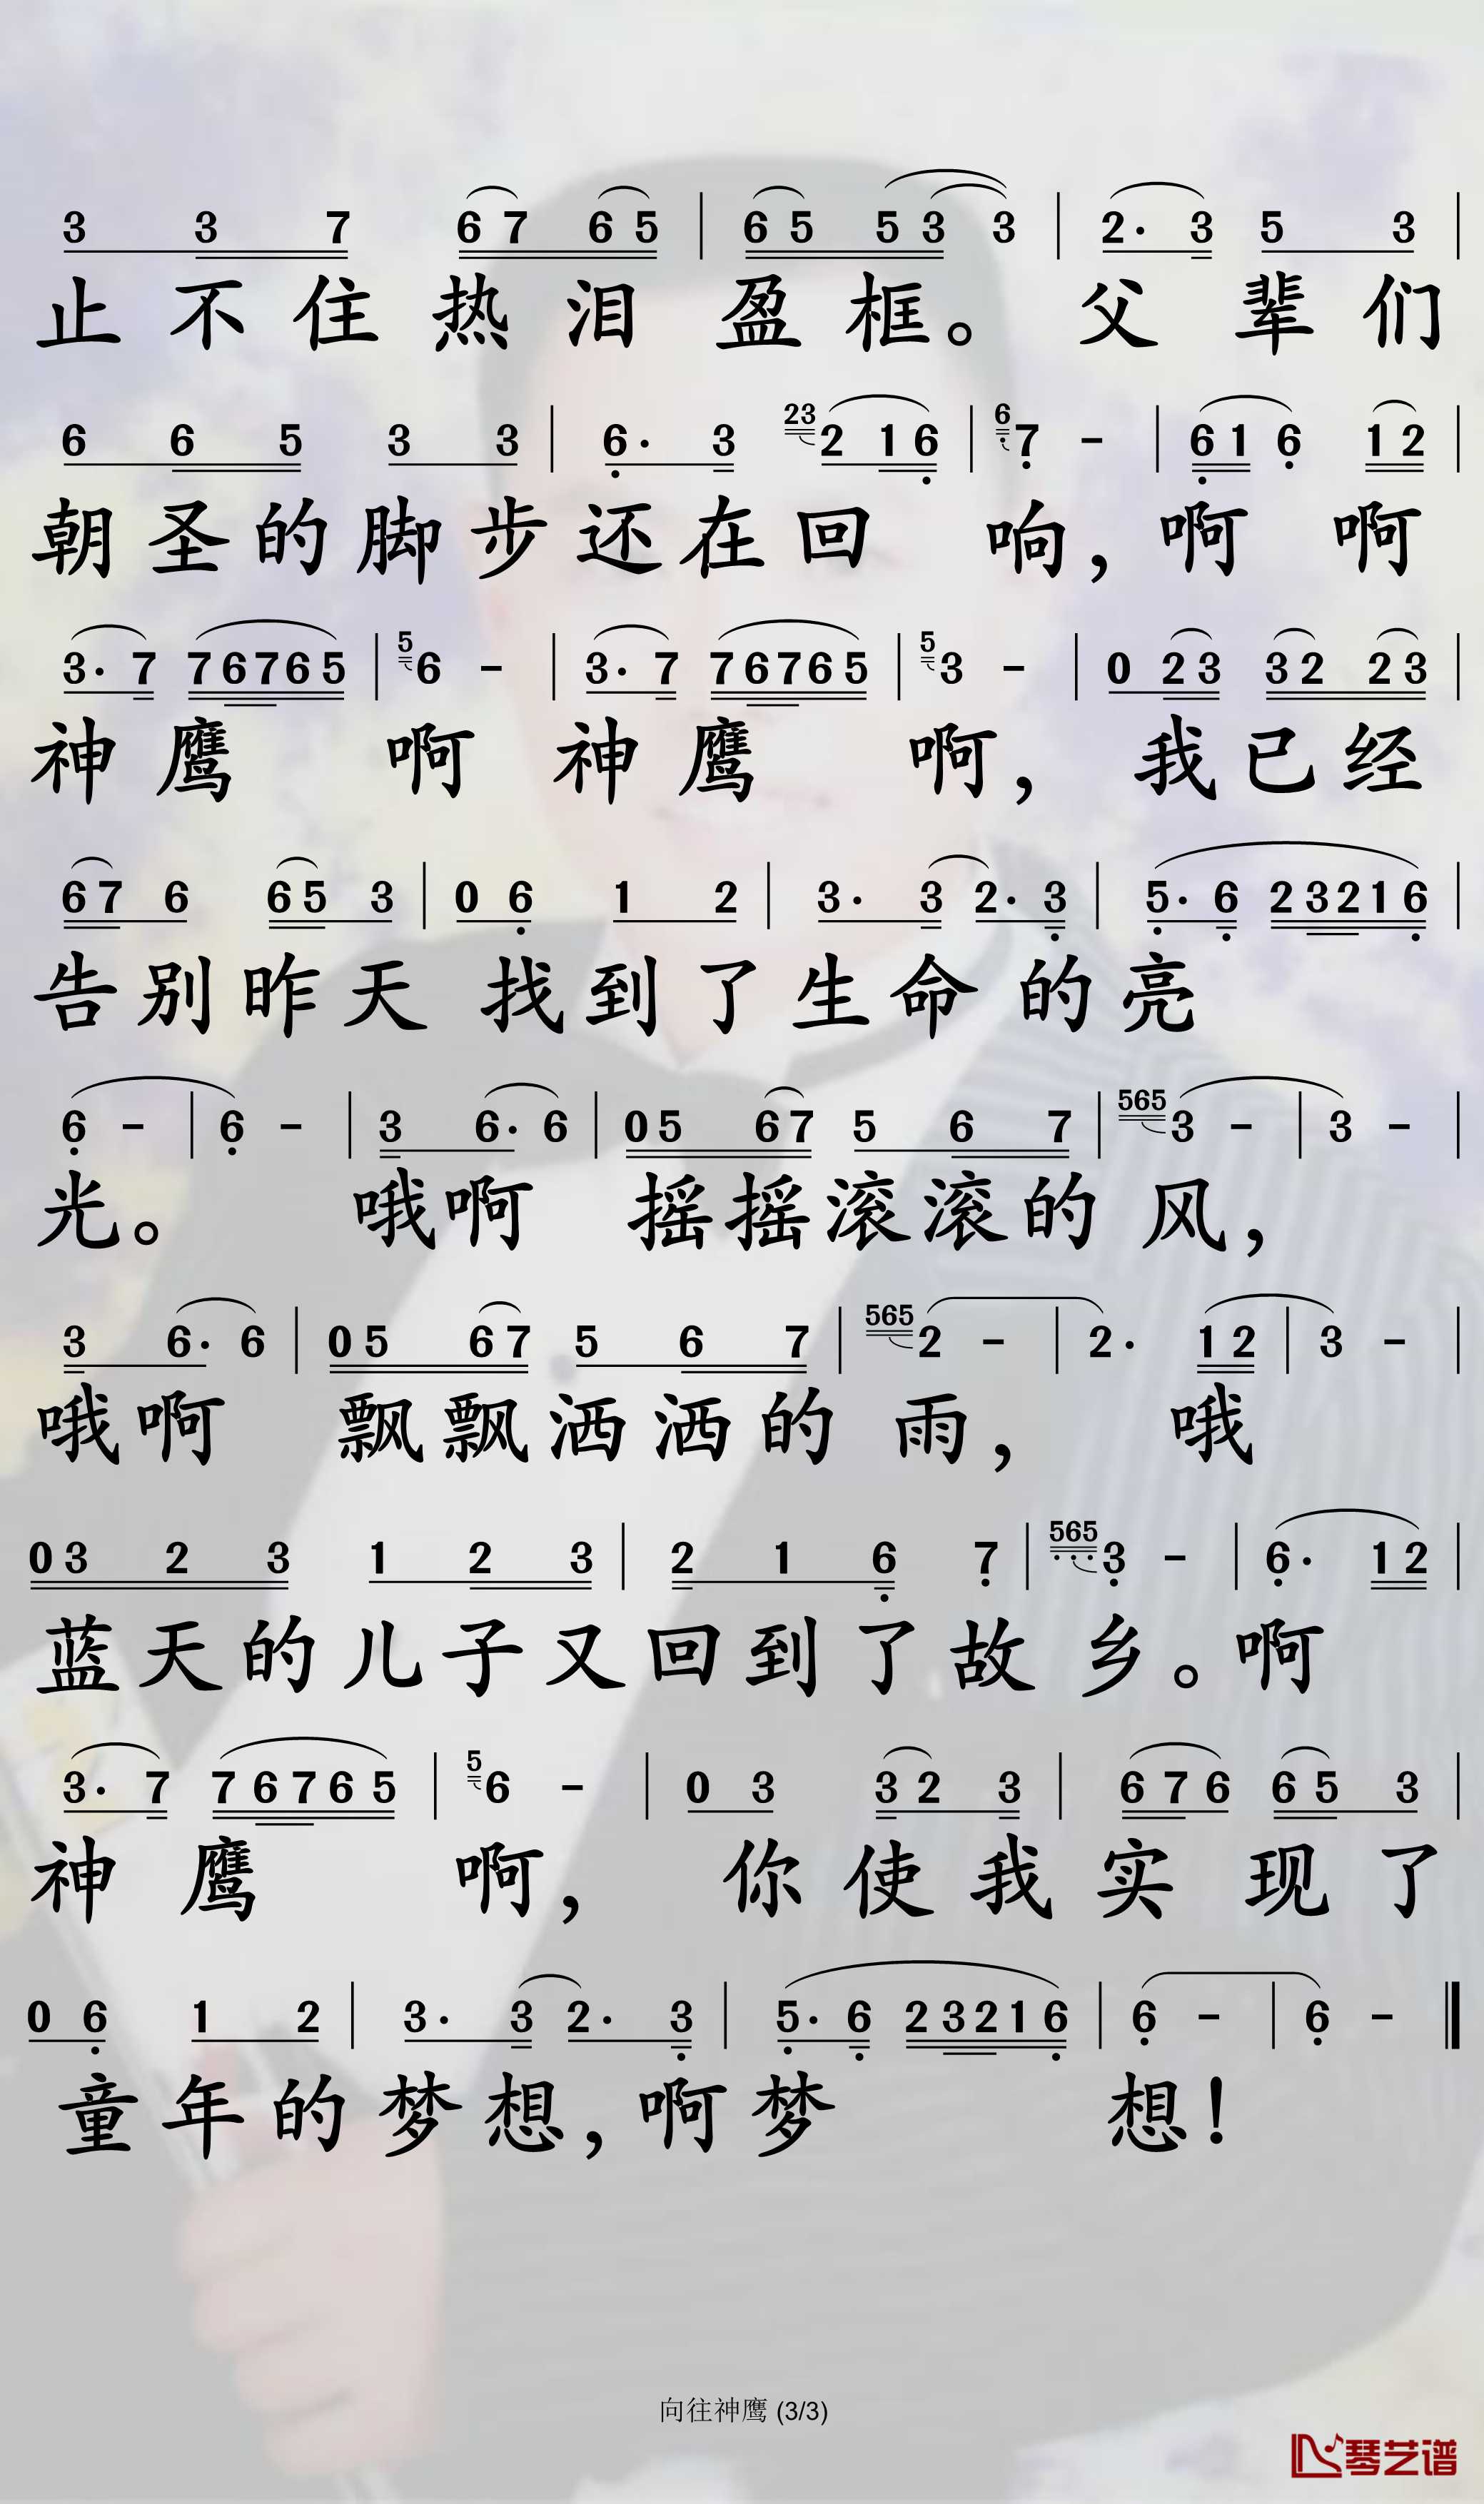 3 3 7 6 7 6 5 | 6 5 5 3 3 | 2· 3 5 3 |
止不住热泪盈框。父辈们
6 6 5 3 3 | 6· 3 23 2 1 6 | 6 7 - | 6 1 6 1 2 |
朝圣的脚步还在回响，啊啊
3· 7 7 6 7 6 5 | 5 6 - | 3· 7 7 6 7 6 5 | 5 3 - | 0 2 3 3 2 2 3 |
神鹰啊神鹰啊，我已经
6 7 6 6 5 3 | 0 6 1 2 | 3· 3 2· 3 | 5· 6 2 3 2 1 6 |
告别昨天找到了生命的亮
6 - | 6 - | 3 6· 6 | 0 5 6 7 5 6 7 | 565 3 - | 3 - |
光。哦啊摇摇滚滚的风，
3 6· 6 | 0 5 6 7 5 6 7 | 565 2 - | 2· 1 2 | 3 - |
哦啊飘飘洒洒的雨，哦
0 3 2 3 1 2 3 | 2 1 6 7 | 565 3 - | 6· 1 2 |
蓝天的儿子又回到了故乡。啊
3· 7 7 6 7 6 5 | 5 6 - | 0 3 3 2 3 | 6 7 6 6 5 3 |
神鹰啊，你使我实现了
0 6 1 2 | 3· 3 2· 3 | 5· 6 2 3 2 1 6 | 6 - | 6 - ‖
童年的梦想，啊梦想！
向往神鹰 (3/3)
琴艺谱